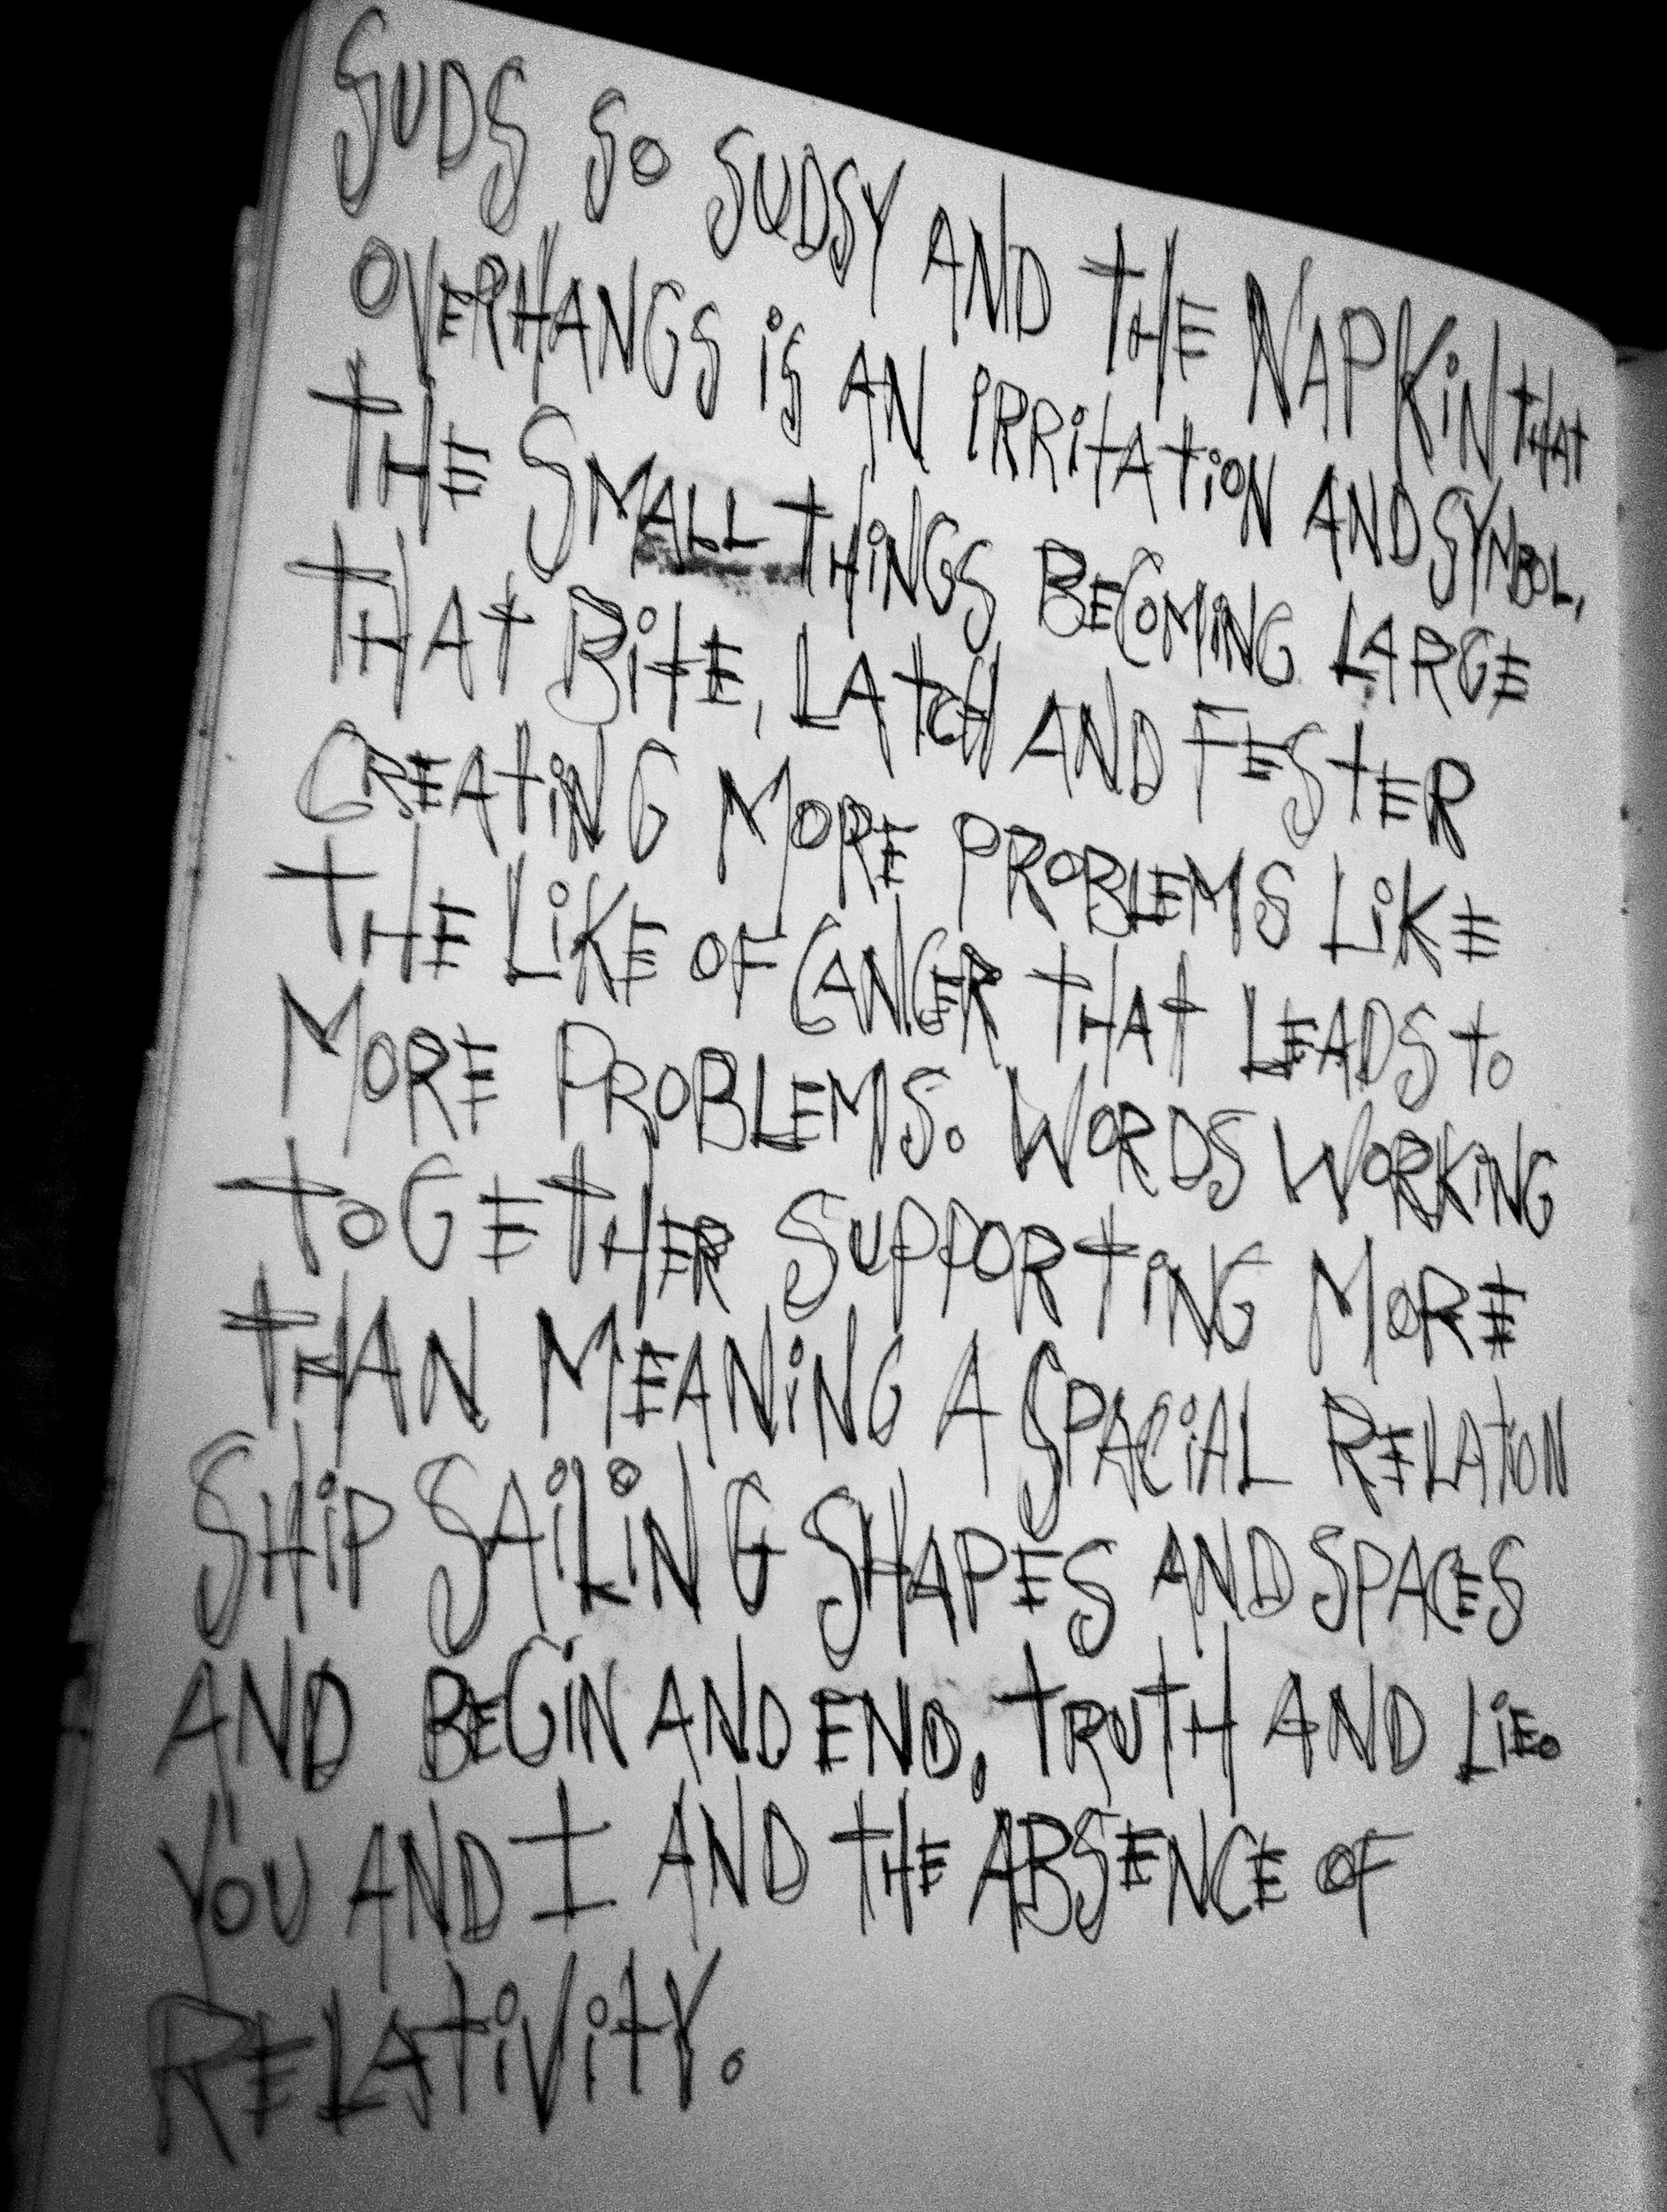 SUDS SO SUDSY AND THE NAPKIN THAT
OVERHANGS iS AN iRRiTATiON AND SYMBOL,
THE SMALL THiNGS BECOMiNG LARGE
THAT BiTE, LATCH AND FESTER
CREATiNG MORE PROBLEMS LiKE
THE LiKE OF CANCER THAT LEADS TO
MORE PROBLEMS. WORDS WORKiNG
TOGETHER SUPPORTiNG MORE
THAN MEANiNG A SPACiAL RELATiON
SHiP SAiLiNG SHAPES AND SPACES
AND BEGiN AND END, TRUTH AND LiE.
YOU AND I AND THE ABSENCE OF
RELATiViTY.